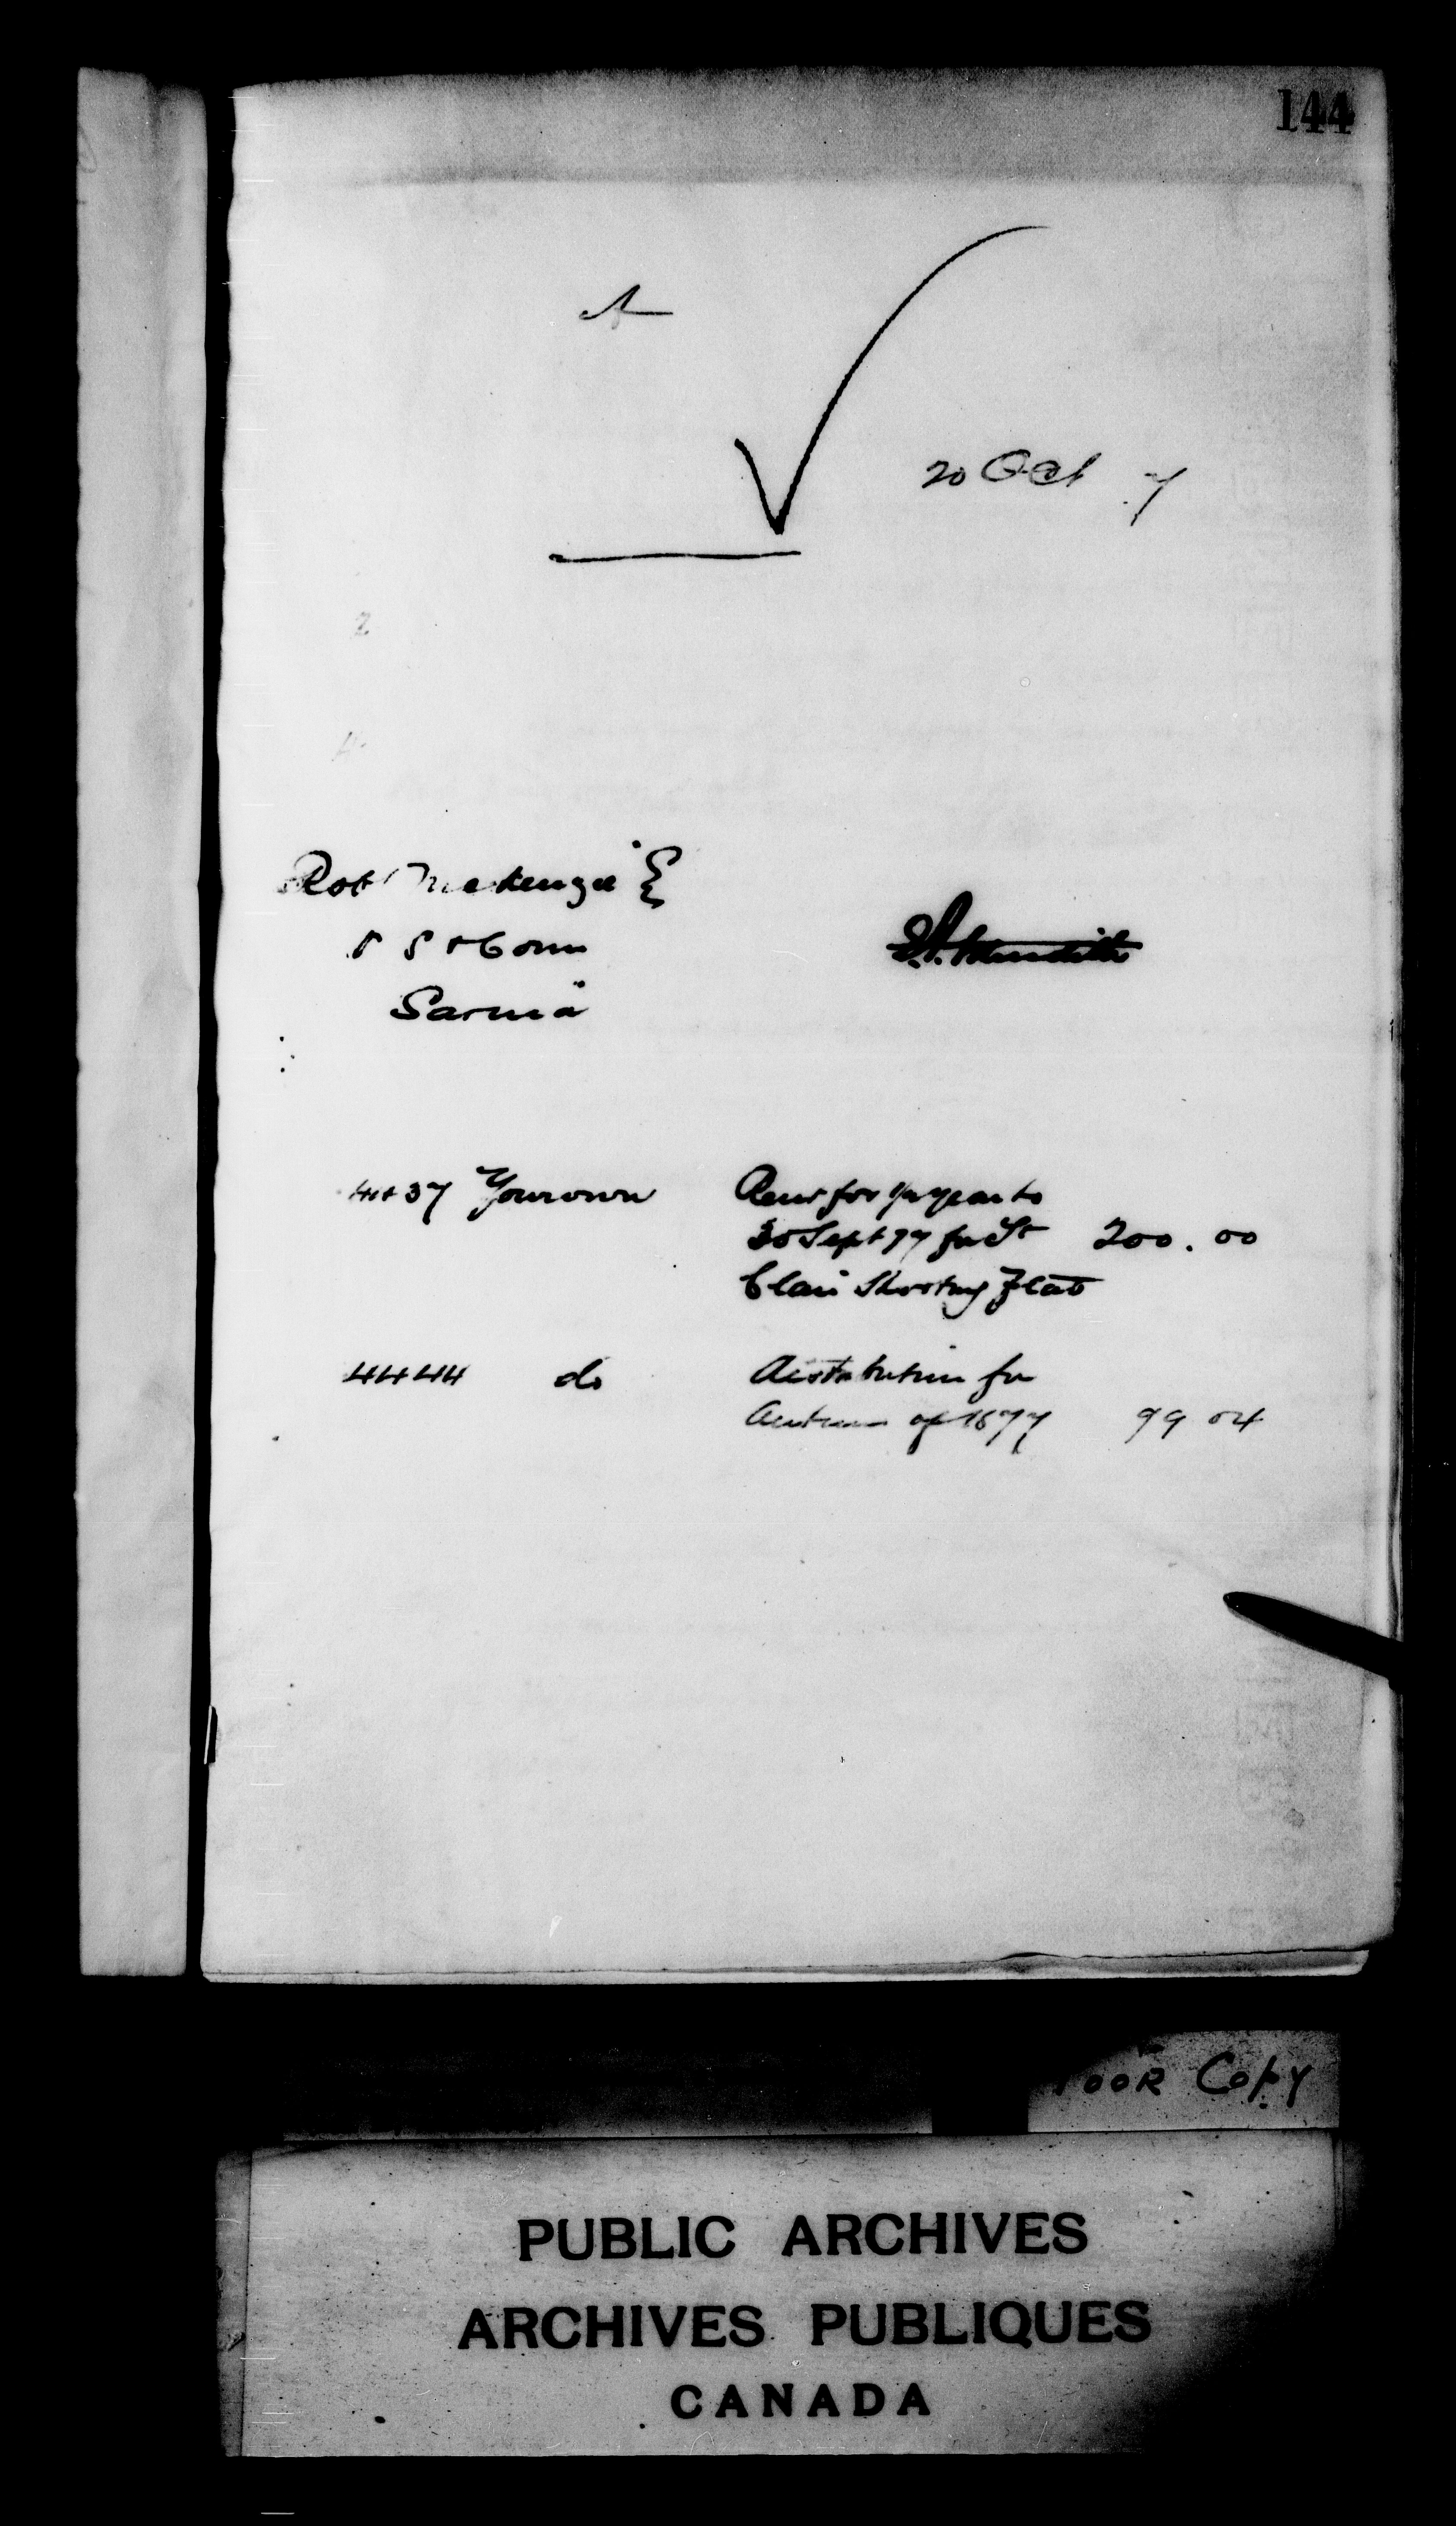 144
20 Oct 7
Robt McKenzie
Sarnia
4437 Your own Rent for 1/2 year to
30 Sept 77 for St 200.00
Clair Shooting Flats
4444 do Distribution for
Autumn of 1877 99 04
Poor Copy
PUBLIC ARCHIVES
ARCHIVES PUBLIQUES
CANADA